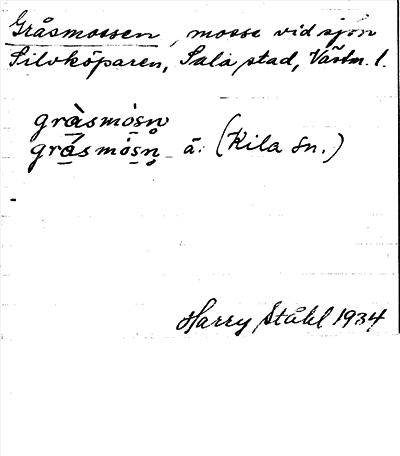 Gråsmossen, mosse vid sjön
Silvköparen, Sala stad, Västm. l.
gràsmòsn
grásmósn̥ ä. (Kila sn.)
Harry Ståhl 1934